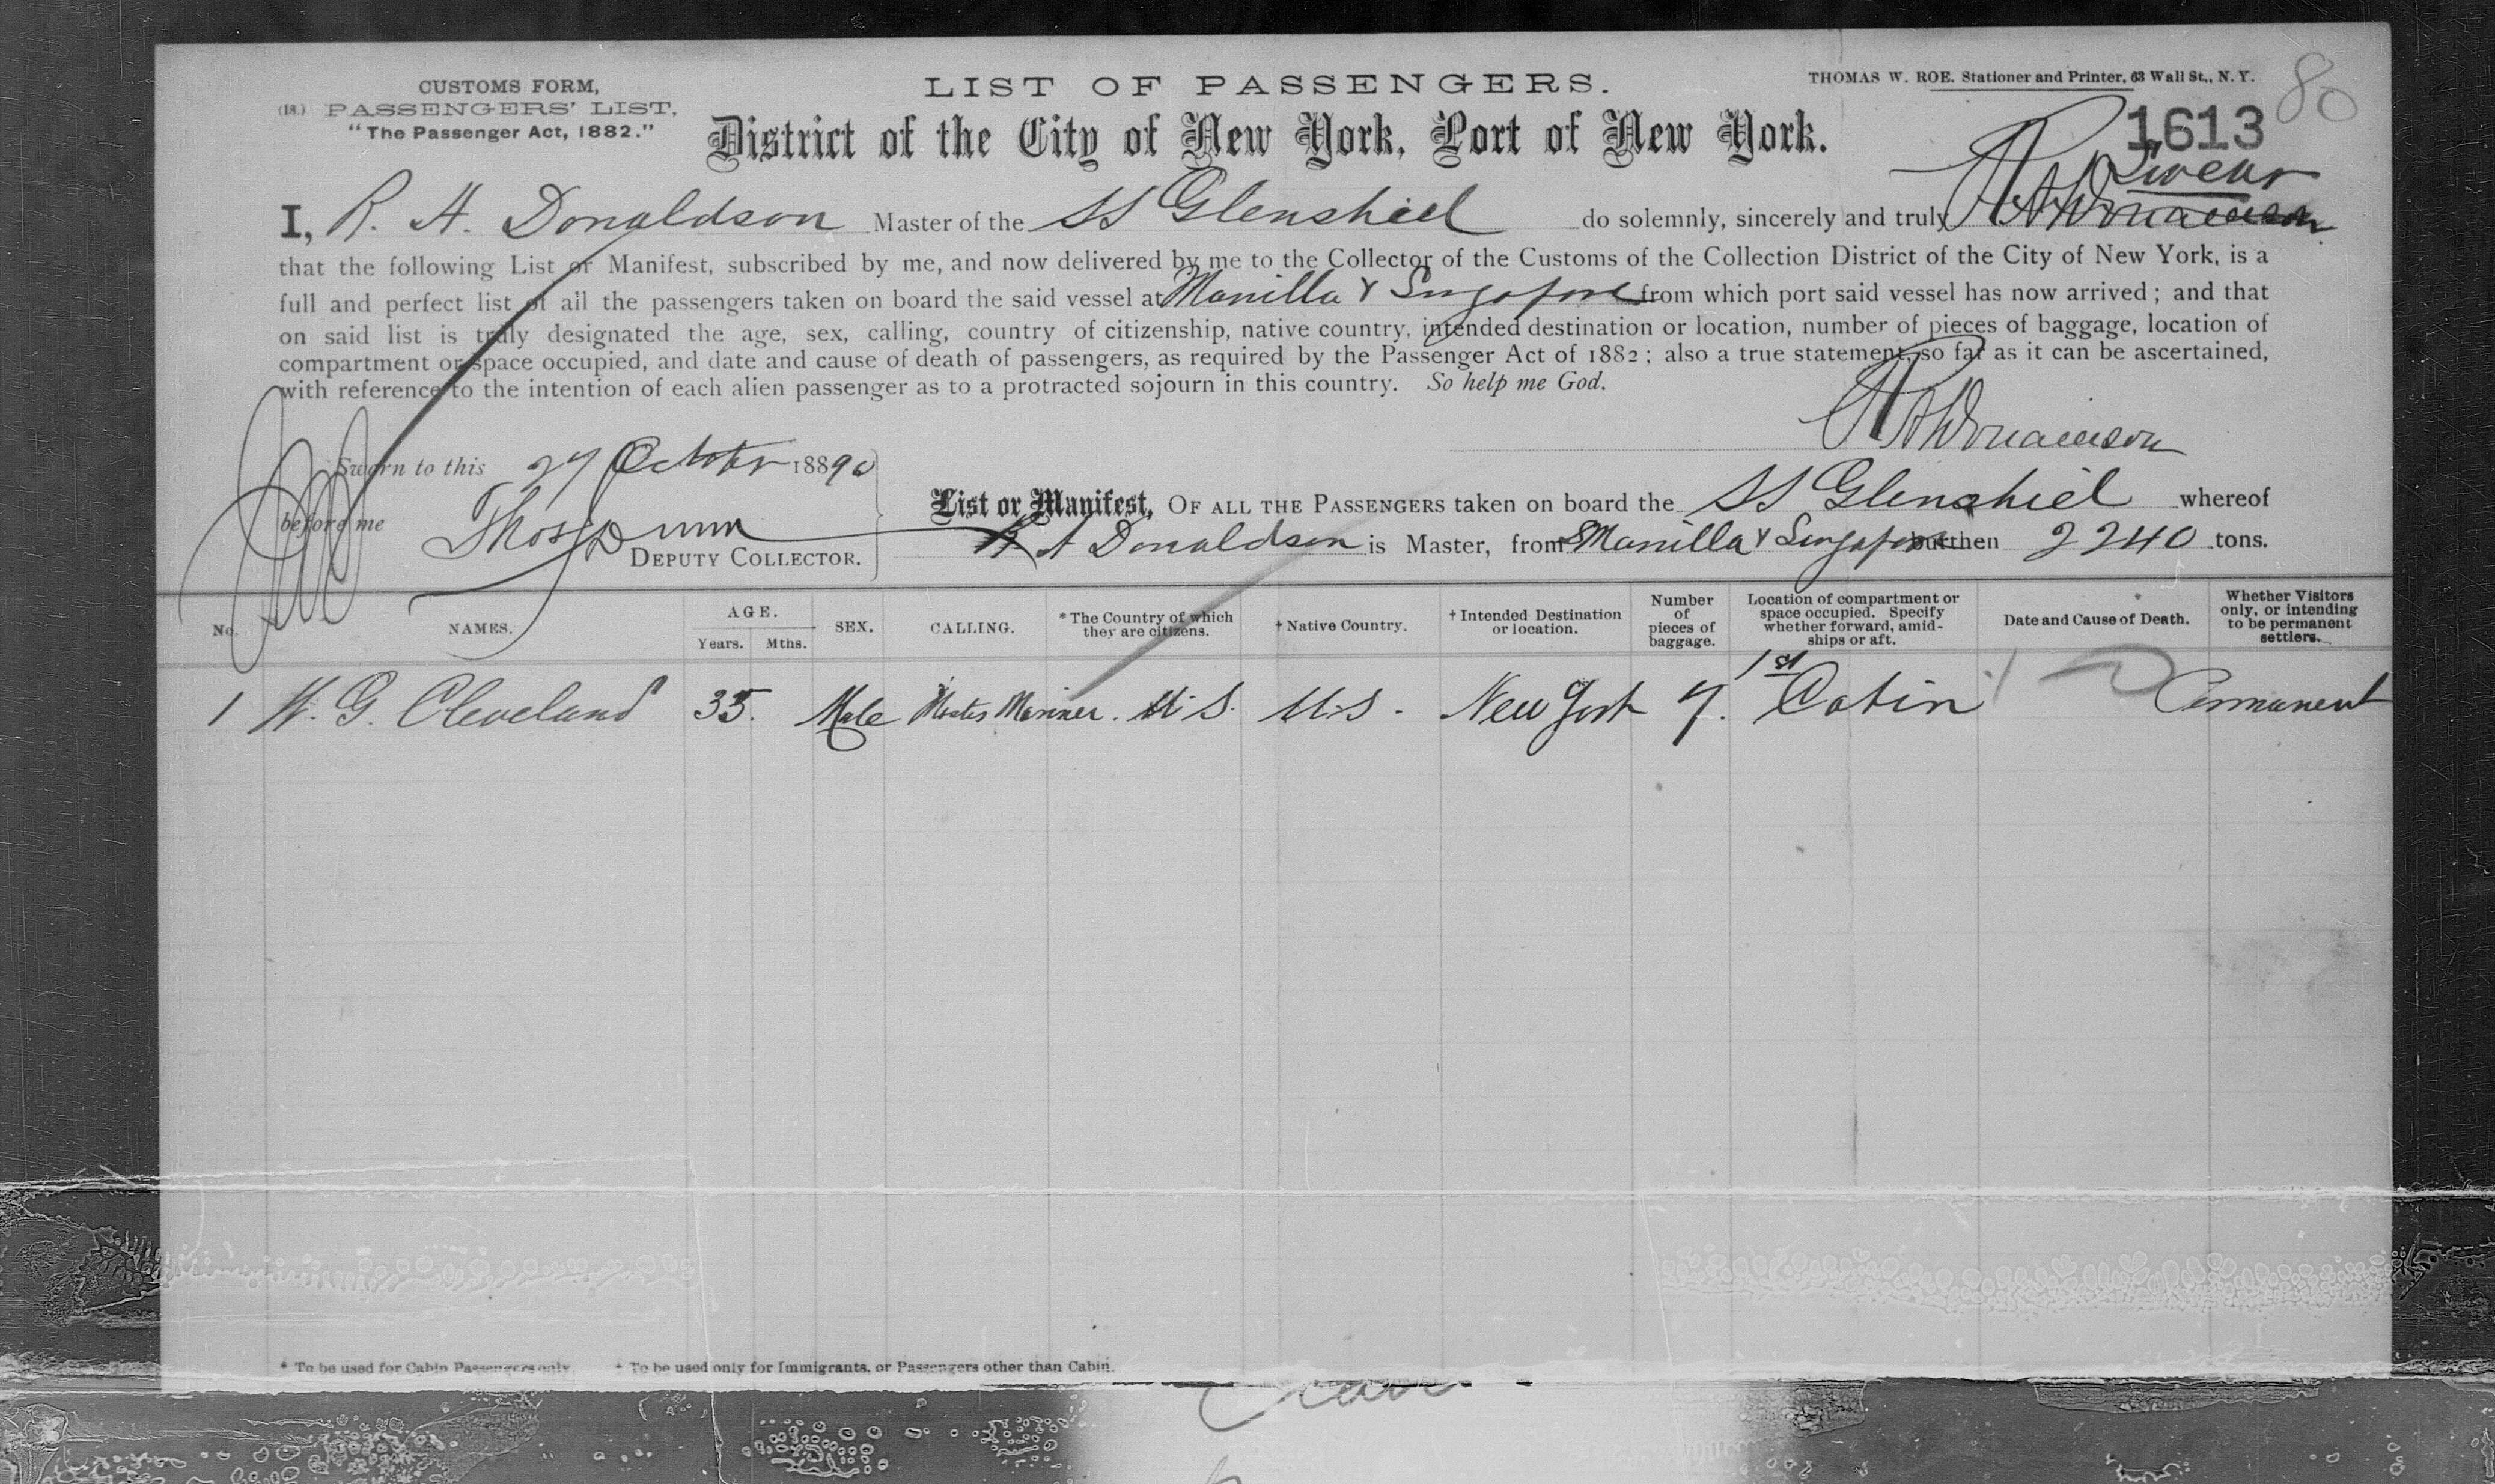 CUSTOMS FORM,
(18.) PASSENGERS' LIST,
"The Passenger Act, 1882."
LIST OF PASSENGERS.
THOMAS W. ROE. Stationer and Printer, 63 Wall St., N. Y.
80
1613
District of the City of New York, Port of New York.
Swear
I, R. A. Donaldson Master of the SS Glenshiel do solemnly, sincerely and truly R A Donaldson
that the following List or Manifest, subscribed by me, and now delivered by me to the Collector of the Customs of the Collection District of the City of New York, is a
full and perfect list of all the passengers taken on board the said vessel at Manilla & Singapore from which port said vessel has now arrived; and that
on said list is truly designated the age, sex, calling, country of citizenship, native country, intended destination or location, number of pieces of baggage, location of
compartment or space occupied, and date and cause of death of passengers, as required by the Passenger Act of 1882; also a true statement, so far as it can be ascertained,
with reference to the intention of each alien passenger as to a protracted sojourn in this country. So help me God.
R A Donaldson
Sworn to this 27 October 1889 0
before me Thos Dunn
DEPUTY COLLECTOR.
List or Manifest, OF ALL THE PASSENGERS taken on board the SS Glenshiel whereof
R A Donaldson is Master, from Manilla & Singapore burthen 2240 tons.
No. NAMES. AGE. Years. Mths. SEX. CALLING. * The Country of which they are citizens. † Native Country. † Intended Destination or location. Number of pieces of baggage. Location of compartment or space occupied. Specify whether forward, amidships or aft. Date and Cause of Death. Whether Visitors only, or intending to be permanent settlers.
1 W. G. Cleveland 35. Male Master Mariner. U.S. U.S. New York 7. 1st Cabin Permanent
* To be used for Cabin Passengers only. † To be used only for Immigrants, or Passengers other than Cabin.